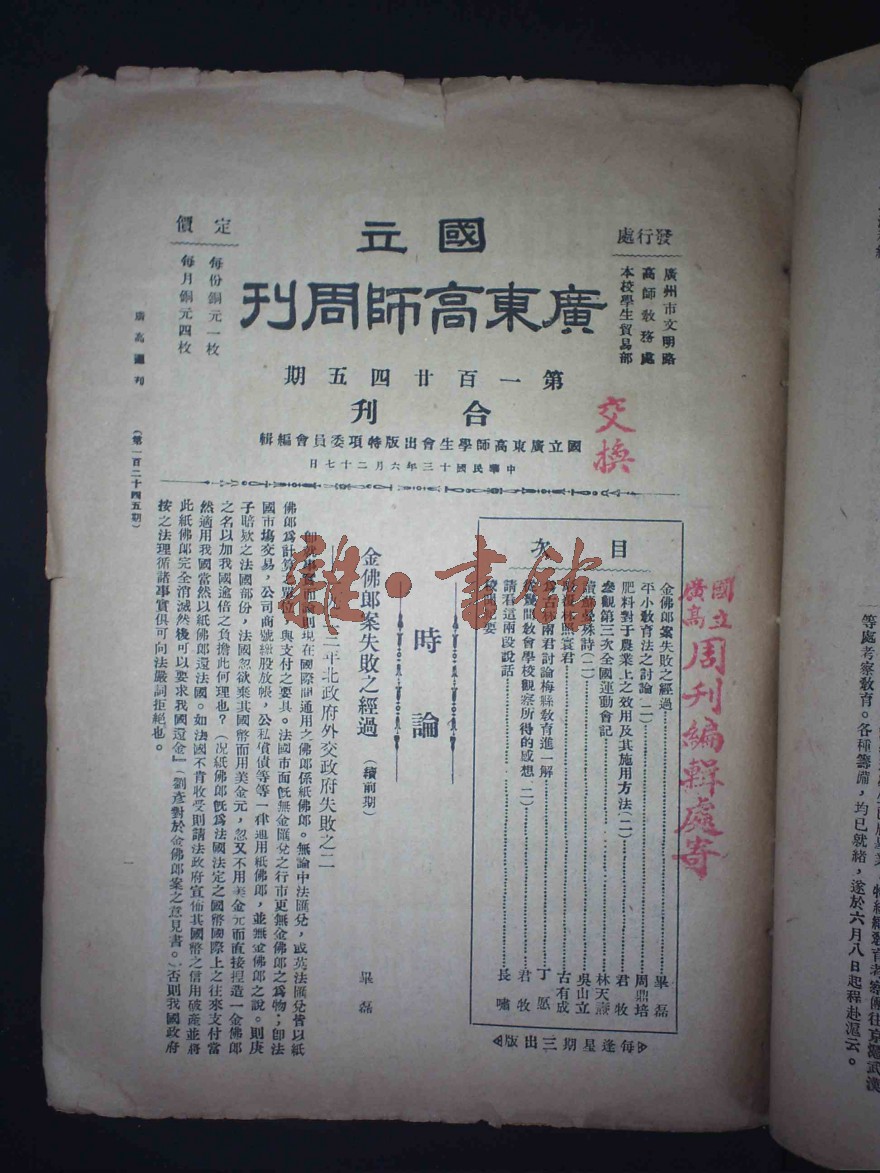 發行處
廣州市文明路
高師教務處
本校學生貿易部
國立
廣東高師周刊
第一百廿四五期
合刊
國立廣東高師學生會出版特項委員會編輯
中華民國十三年六月二十七日
定價
每份銅元一枚
每月銅元四枚
廣高週刊
(第一百二十四五期)
交換
國立
廣高
周刊編輯處寄
目次
金佛郎案失敗之經過 畢磊
平小教育法之討論(二) 周鼎培
肥料對于農業上之效用及其施用方法(二) 君牧
參觀第三次全國運動會記 林天
讀蘇曼殊詩(二) 吳山立
林照寰君 古有成
古林兩君討論梅縣教育進一解 丁愿
間教會學校觀察所得的感想(二) 君牧
請看這兩段說話 長嘯
要
每逢星期三出版
時論
金佛郎案失敗之經過(續前期)
北政府外交政府失敗之二
畢磊
論則現在國際間通用之佛郎係紙佛郎。無論中法匯兌,或英法匯兌皆以紙
佛郎爲計算之單位,與支付之要具。法國市面旣無金匯兌之行市更無金佛郎之爲物;卽法
國市塲交易,公司商號繳股放帳,公私債債等等一律通用紙佛郎,並無金佛郎之說。則庚
子賠欵之法國部份,法國忽欲棄其國幣而用美金元,忽又不用美金元而直接捏造一金佛郎
之名以加我國逾倍之負擔此何理也?(况紙佛郎旣爲法國法定之國幣國際上之往來支付當
然適用我國當然以紙佛郎還法國。如法國不肯收受則請法政府宣佈其國幣之信用破產並將
此紙佛郎完全消滅然後可以要求我國還金』(劉彥對於金佛郎案之意見書。)否則我國政府
按之法理循諸事實俱可向法嚴詞拒絕也。
一
雜·書館
等處考察敎育。各種籌備,均已就緒,遂於六月八日起程赴滬云。